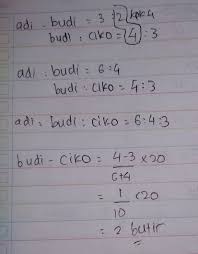 adi : budi = 3 : 2
budi : ciko = 4 : 3
adi : budi = 6 : 4
budi : ciko = 4 : 3
adi : budi : ciko = 6 : 4 : 3
budi - ciko = 4-3/6+4 × 20
= 1/10 × 20
= 2 butir